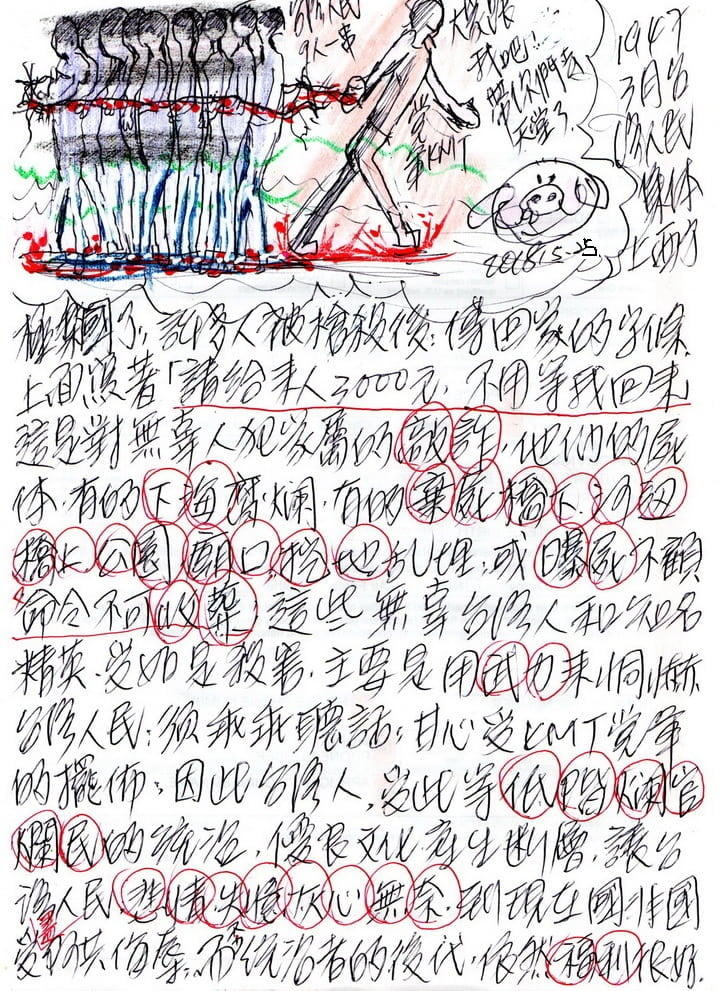 台湾人民
9人一串
大家跟
我吧!!
帶你們去
天堂了
党
軍KMT
1947
3月台
湾人民
媒体
上两了
2018.5.5
許多人被槍殺後,傳回家的字條
上面照著「請給来人3000元,不用等我回来」
這是對無辜人犯家屬的敲詐,他們的屍
体,有的下海腐爛,有的棄屍橋下,河
橋上,公園,廟口,挖地乱埋,或曝屍不顧
命令不可收葬,這些無辜台湾人和知名
精英,受如是殺害,主要是用武力来恫嚇
台湾人民:須乖乖聽話,甘心受KMT党軍
的擺佈,因此台湾人,受此等低階爛官
爛民的統治,優良文化產生断層,讓台
湾人民,悲情失憶灰心無奈,到現在國非國
受 共侮辱,而統治者的後代,依然福利很好.